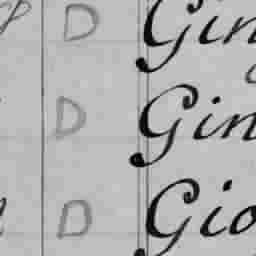 D Gin
D Gin
D Gio